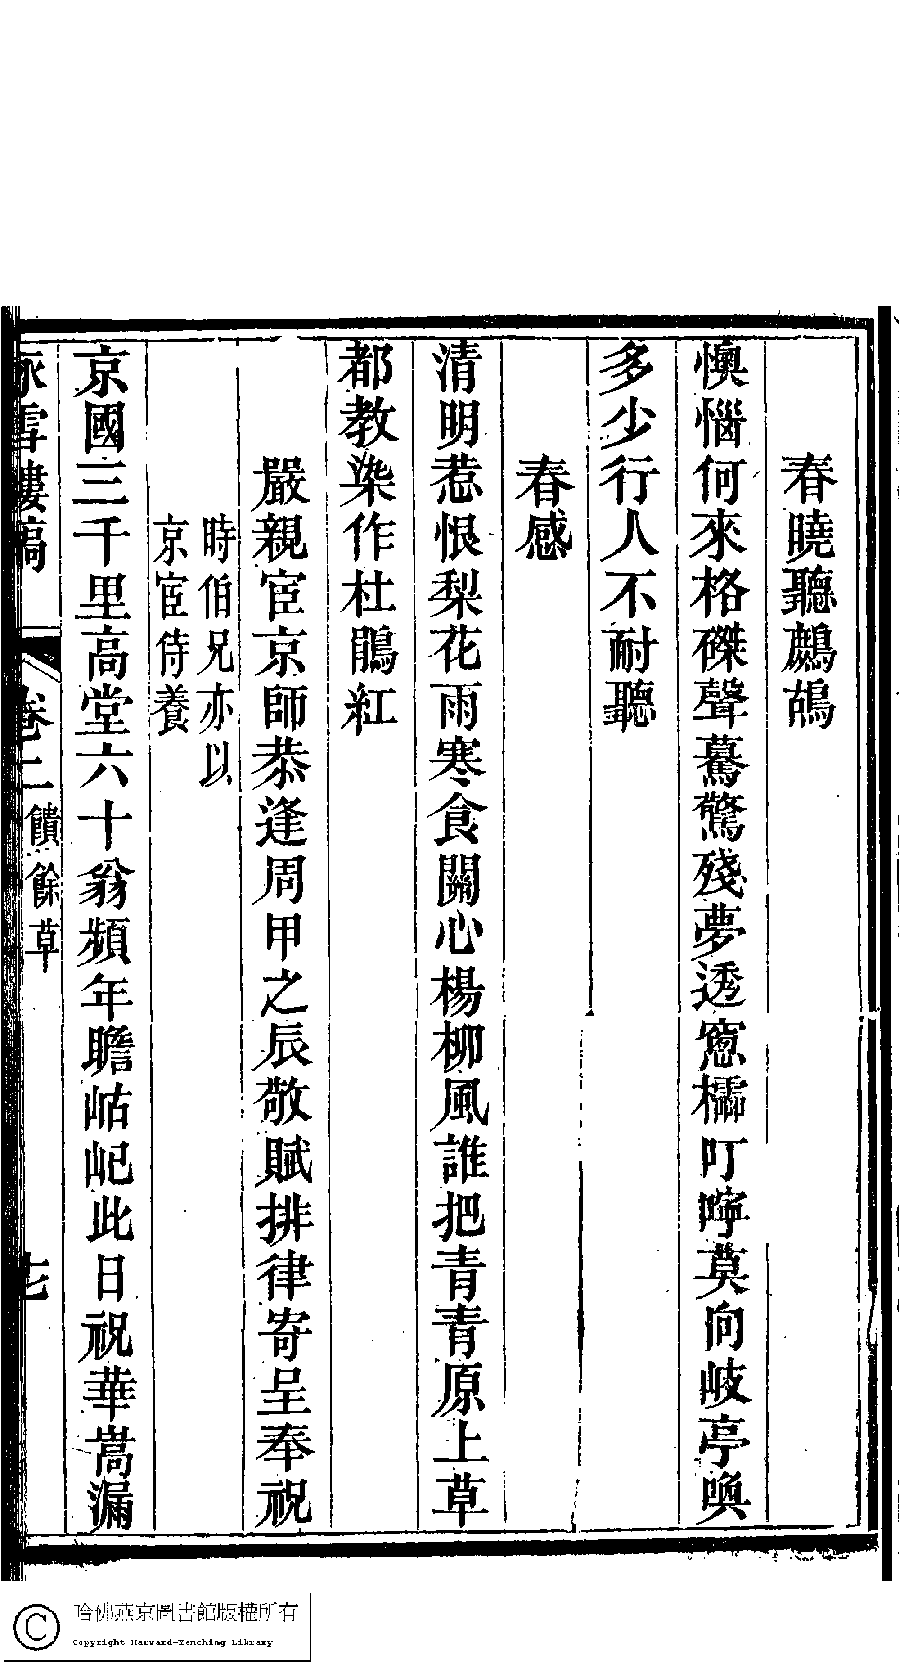 春曉聽鷓鴣
懊惱何來格磔聲驀驚殘夢透窻櫺叮嚀莫向岐亭喚
多少行人不耐聽
春感
清明惹恨梨花雨寒食關心楊柳風誰把青青原上草
都教染作杜鵑紅
嚴親宦京師恭逢周甲之辰敬賦排律寄呈奉祝
時伯兄亦以
京宦侍養
京國三千里高堂六十翁頻年瞻岵屺此日祝華嵩漏
雪樓稿 卷二 饋餘草 七
哈佛燕京圖書館版權所有
Copyright Harvard-Yenching Library